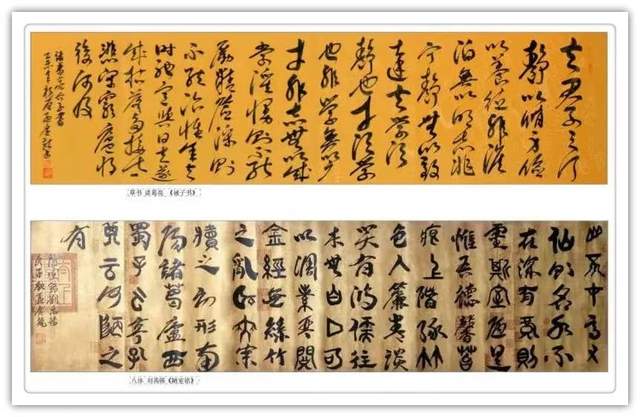 夫君子之行
静以修身俭
以养德非澹
泊无以明志非
宁静无以致
远夫学须
静也才须学
也非学无以广
才非志无以成
学淫慢则不能
励精险躁则
不能治性年与
时驰意与日去遂
成枯落多不接世
悲守穷庐将
复何及
诸葛亮诫子书
草书 诸葛亮 《诫子书》
山不在高有
仙则名水不
在深有龙则
灵斯室陋是
惟吾德馨苔
痕上阶绿草
色入帘青谈
笑有鸿儒往
来无白丁可
以调素琴阅
金经无丝竹
之乱耳无案
牍之劳形南
阳诸葛庐西
蜀子云亭孔
子云何陋之
有
刘禹锡《陋室铭》